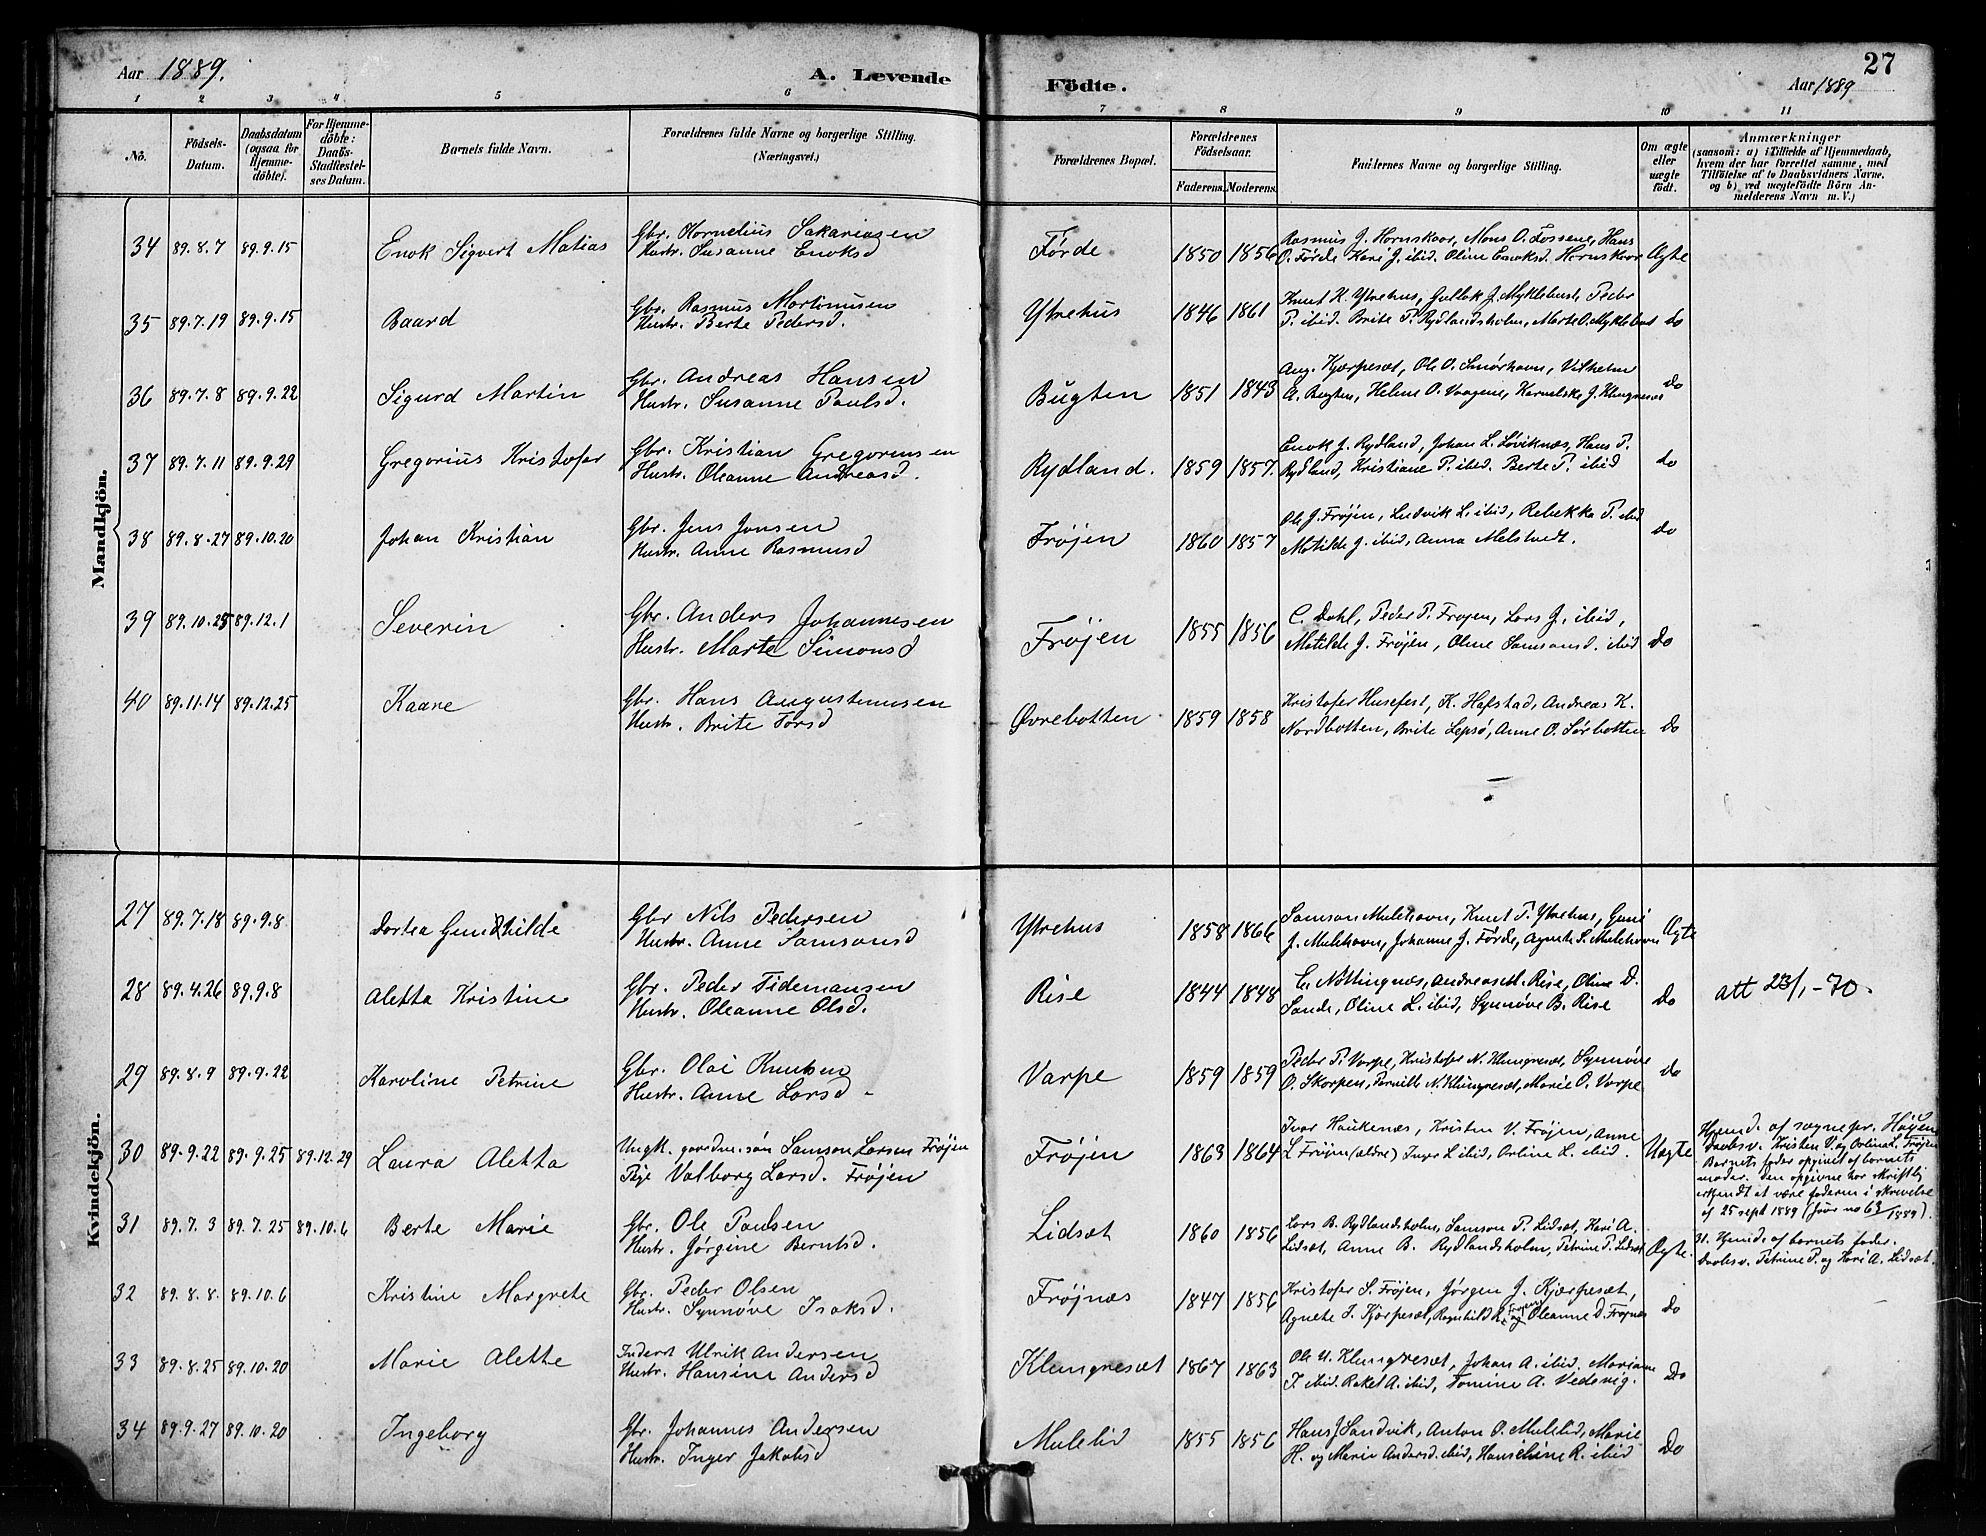 Aar 1889.
A. Levende
Födte.
Aar 1889
27
1 2 3 4 5 6 7 8 9 10 11
No.
Födsels-
Datum.
Daabsdatum
(ogsaa for
Hjemme-
döbte).
For Hjemme-
döbte:
Daabs-
Stadfæstel-
ses Datum.
Barnets fulde Navn.
Forældrenes fulde Navne og borgerlige Stilling.
(Næringsvei.)
Forældrenes Bopæl.
Forældrenes
Födselsaar.
Faderens. Moderens.
Faddernes Navne og borgerlige Stilling.
Om ægte
eller
uægte
födt.
Anmærkninger
(saasom: a) i Tilfælde af Hjemmedaab,
hvem der har forrettet samme, med
Tilföielse af to Daabsvidners Navne,
og b) ved uægtefödte Börn An-
melderens Navn m. V.)
Mandkjön.
34 89.8.7 89.9.15 Enok Sigvert Matias
Gbr. Kornelius Sakariasen
Hustr. Susanne Enoksd
Førde 1850 1856
Rasmus J. Hornskaar, Mons O. Fossene, Hans
O. Førde Kari J. ibid. Oline Enoksd. Hornskaar
Ægte
35 89.7.19 89.9.15 Baard
Gbr. Rasmus Martinusen
Hustr. Berte Pedersd.
Ytrehus 1846 1861
Knut K. Ytrehus, Gullak J. Myklebust, Peder
P. ibid. Brite P. Rydlandsholm, Marte O. Myklebust
do
36 89.7.8 89.9.22 Sigurd Martin
Gbr. Andreas Hansen
Hustr. Susanne Paulsd.
Bugten 1851 1843
Aug. Kjørpesæt, Ole O. Smørhavn, Vilhelm
A. Bugten, Helene O. Vaagene, Kornelske J. Klungresæt
do
37 89.7.11 89.9.29 Gregorius Kristofer
Gbr. Kristian Gregoriusen
Hustr. Oleanne Andreasd.
Rydland. 1859 1857.
Enok J. Rydland, Johan L. Løviknæs, Hans P.
Rydland, Kristiane P. ibid. Berte P. ibid
do
38 89.8.27 89.10.20 Johan Kristian
Gbr. Jens Jonsen
Hustr. Anne Rasmusd
Frøjen 1860 1857
Ole J. Frøjen, Ludvik L. ibid, Rebekka P. ibid
Matilde J. ibid, Anna Melstvedt.
do
39 89.10.25 89.12.1 Severin
Gbr. Anders Johannesen
Hustr. Marte Simonsd
Frøjen 1855 1856
C. Dahl, Peder P. Frøjen, Lars J. ibid,
Matilde J. Frøjen, Oline Samsonsd. ibid
do
40 89.11.14 89.12.25 Kaare
Gbr. Hans Augustinusen
Hustr. Brite Torsd
Øvrebotten 1859 1858
Kristofer Husefest, K. Hafstad, Andreas K.
Nordbotten, Brite Lepsø, Anne O. Sørbotten
do
Kvindekjön.
27 89.7.18 89.9.8 Dortea Gundhilde
Gbr Nils Pedersen
Hustr. Anne Samsonsd
Ytrehus 1858 1866
Samson Mulehavn, Knut P. Ytrehus, Guni
J. Mulehavn, Johanne J. Førde, Agnete S. Mulehavn
Ægte
28 89.4.26 89.9.8 Aletta Kristine
Gbr. Peder Tidemansen
Hustr. Oleanne Olsd.
Rise 1844 1848
E. Nøttingnæs, Andreas M. Rise, Oline D.
Sande, Oline L. ibid, Synnøve B. Rise
do
att 23/1-70.
29 89.8.9 89.9.22 Karoline Petrine
Gbr. Olai Knutsen
Hustr. Anne Larsd.
Varpe 1859 1859
Peder P. Varpe, Kristofer N. Klungresæt, Synnøve
O. Skorpen, Pernille N. Klungresæt, Marie O. Varpe
do
30 89.9.22 89.9.25 89.12.29 Laura Aletta
Ungk. gaardm.søn Samson Larsen Frøjen
Pige Valborg Larsd. Frøjen
Frøjen 1863 1864
Ivar Haukenæs, Kristen V. Frøjen, Anne
L Frøjen (ældre) Inger L ibid, Arline L. ibid.
Uægte
Hjemd. af sognepr. Høyen
Daabsv. Kristen V. og Arlina L. Frøjen
Barnets fader opgivet af barnets
moder. Den opgivne har skriftlig
erkjendt at være faderen i skrivelse
af 25 sept 1889 (Jour no 63/1889).
31 89.7.3 89.7.25 89.10.6 Berte Marie
Gbr. Ole Paulsen
Hustr. Jørgine Berntsd.
Lidsæt 1860 1856
Lars B. Rydlandsholm, Samson P. Lidsæt, Kari A.
Lidsæt, Anne B. Rydlandsholm, Petrine P. Lidsæt
Ægte.
31. Hjemd. af barnets fader.
Daabsv. Petrine P. og Kari A. Lidsæt.
32 89.8.8. 89.10.6 Kristine Margrete
Gbr. Peder Olsen
Hustr. Synnøve Isaksd.
Frøjnæs 1847 1856
Kristofer S. Frøjen, Jørgen J. Kjørpesæt,
Agnete I. Kjørpesæt, Ragnhild R. Frøjen og Oleanne D. Frøjnæs
do
33 89.8.25 89.10.20 Marie Alette
Inderst Ulrik Andersen
Hustr. Hansine Andersd
Klungresæt 1867 1863
Ole U. Klungresæt, Johan A. ibid. Mariane
T. ibid. Rakel A. ibid, Tomine A. Vedvig.
Do
34 89.9.27 89.10.20 Ingeborg
Gbr. Johannes Andersen
Hustr. Inger Jakobsd
Mulelid 1855 1856
Hans J Sandvik, Anton O. Mulelid, Marie
H. og Marie Andersd. ibid, Hanschine R. ibid
Do